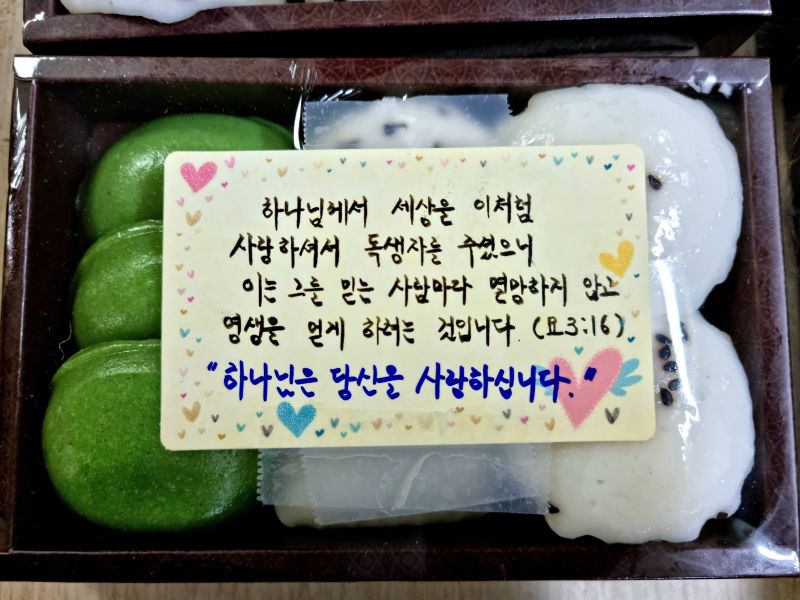 하나님께서 세상을 이처럼
사랑하셔서 독생자를 주셨으니
이는 그를 믿는 사람마다 멸망하지 않고
영생을 얻게 하려는 것입니다. (요3:16)
"하나님은 당신을 사랑하십니다."